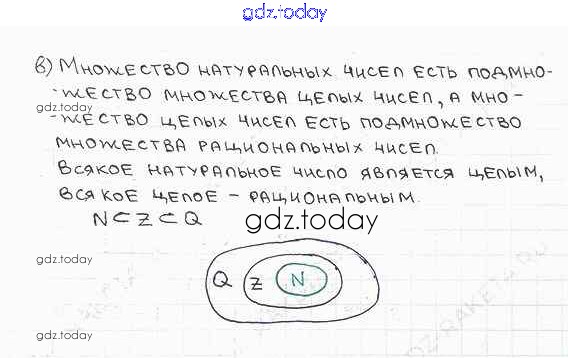 gdz.today
в) Множество натуральных чисел есть подмно-
gdz.today
жество множества целых чисел, а мно-
gdz.today
жество целых чисел есть подмножество
множества рациональных чисел.
Всякое натуральное число является целым,
всякое целое – рациональным.
N⊂Z⊂Q
gdz.today
gdz.today
Q Z N
gdz.today